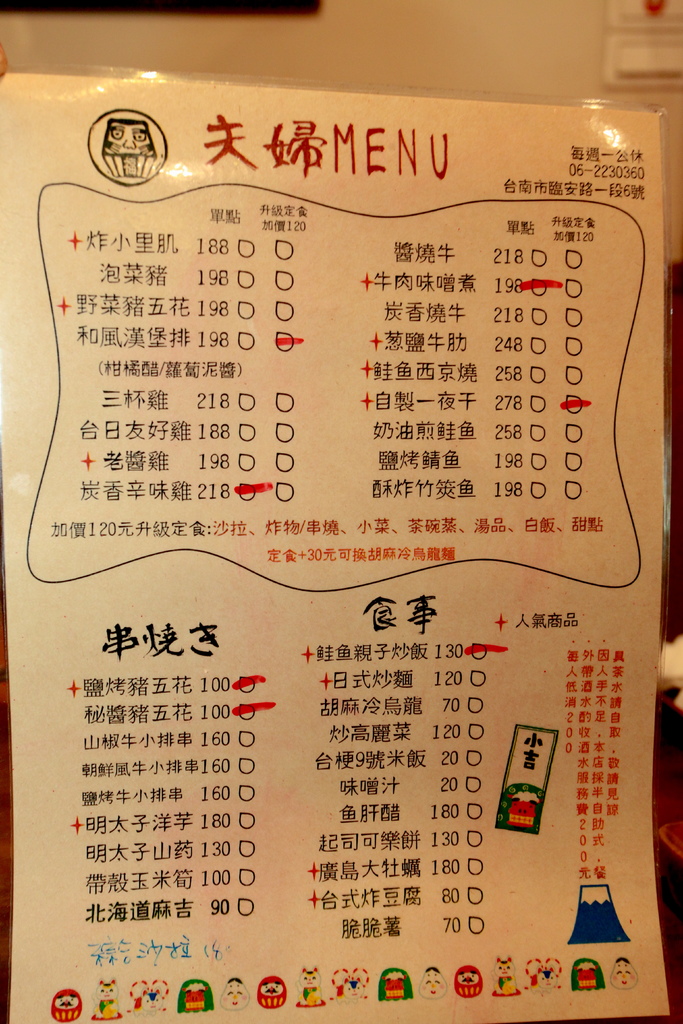 夫婦MENU
每週一公休
06-2230360
台南市臨安路一段6號
單點 升級定食加價120
炸小里肌 188
泡菜豬 198
野菜豬五花 198
和風漢堡排 198
(柑橘醋/蘿蔔泥醬)
三杯雞 218
台日友好雞 188
老醬雞 198
炭香辛味雞 218
單點 升級定食加價120
醬燒牛 218
牛肉味噌煮 198
炭香燒牛 218
葱鹽牛肋 248
鮭鱼西京燒 258
自製一夜干 278
奶油煎鮭鱼 258
鹽烤鯖鱼 198
酥炸竹筴鱼 198
加價120元升級定食:沙拉、炸物/串燒、小菜、茶碗蒸、湯品、白飯、甜點
定食+30元可換胡麻冷烏龍麵
串焼き
鹽烤豬五花 100
秘醬豬五花 100
山椒牛小排串 160
朝鮮風牛小排串 160
鹽烤牛小排串 160
明太子洋芋 180
明太子山药 130
帶殼玉米筍 100
北海道麻吉 90
食事
人氣商品
鮭鱼親子炒飯 130
日式炒麵 120
胡麻冷烏龍 70
炒高麗菜 120
台梗9號米飯 20
味噌汁 20
鱼肝醋 180
起司可樂餅 130
廣島大牡蠣 180
台式炸豆腐 80
脆脆薯 70
小吉
具茶水請自取，敬請見諒
因人手不足，本店採半自助式，餐
外帶酒水酌收酒水服務費200元
每人低消200